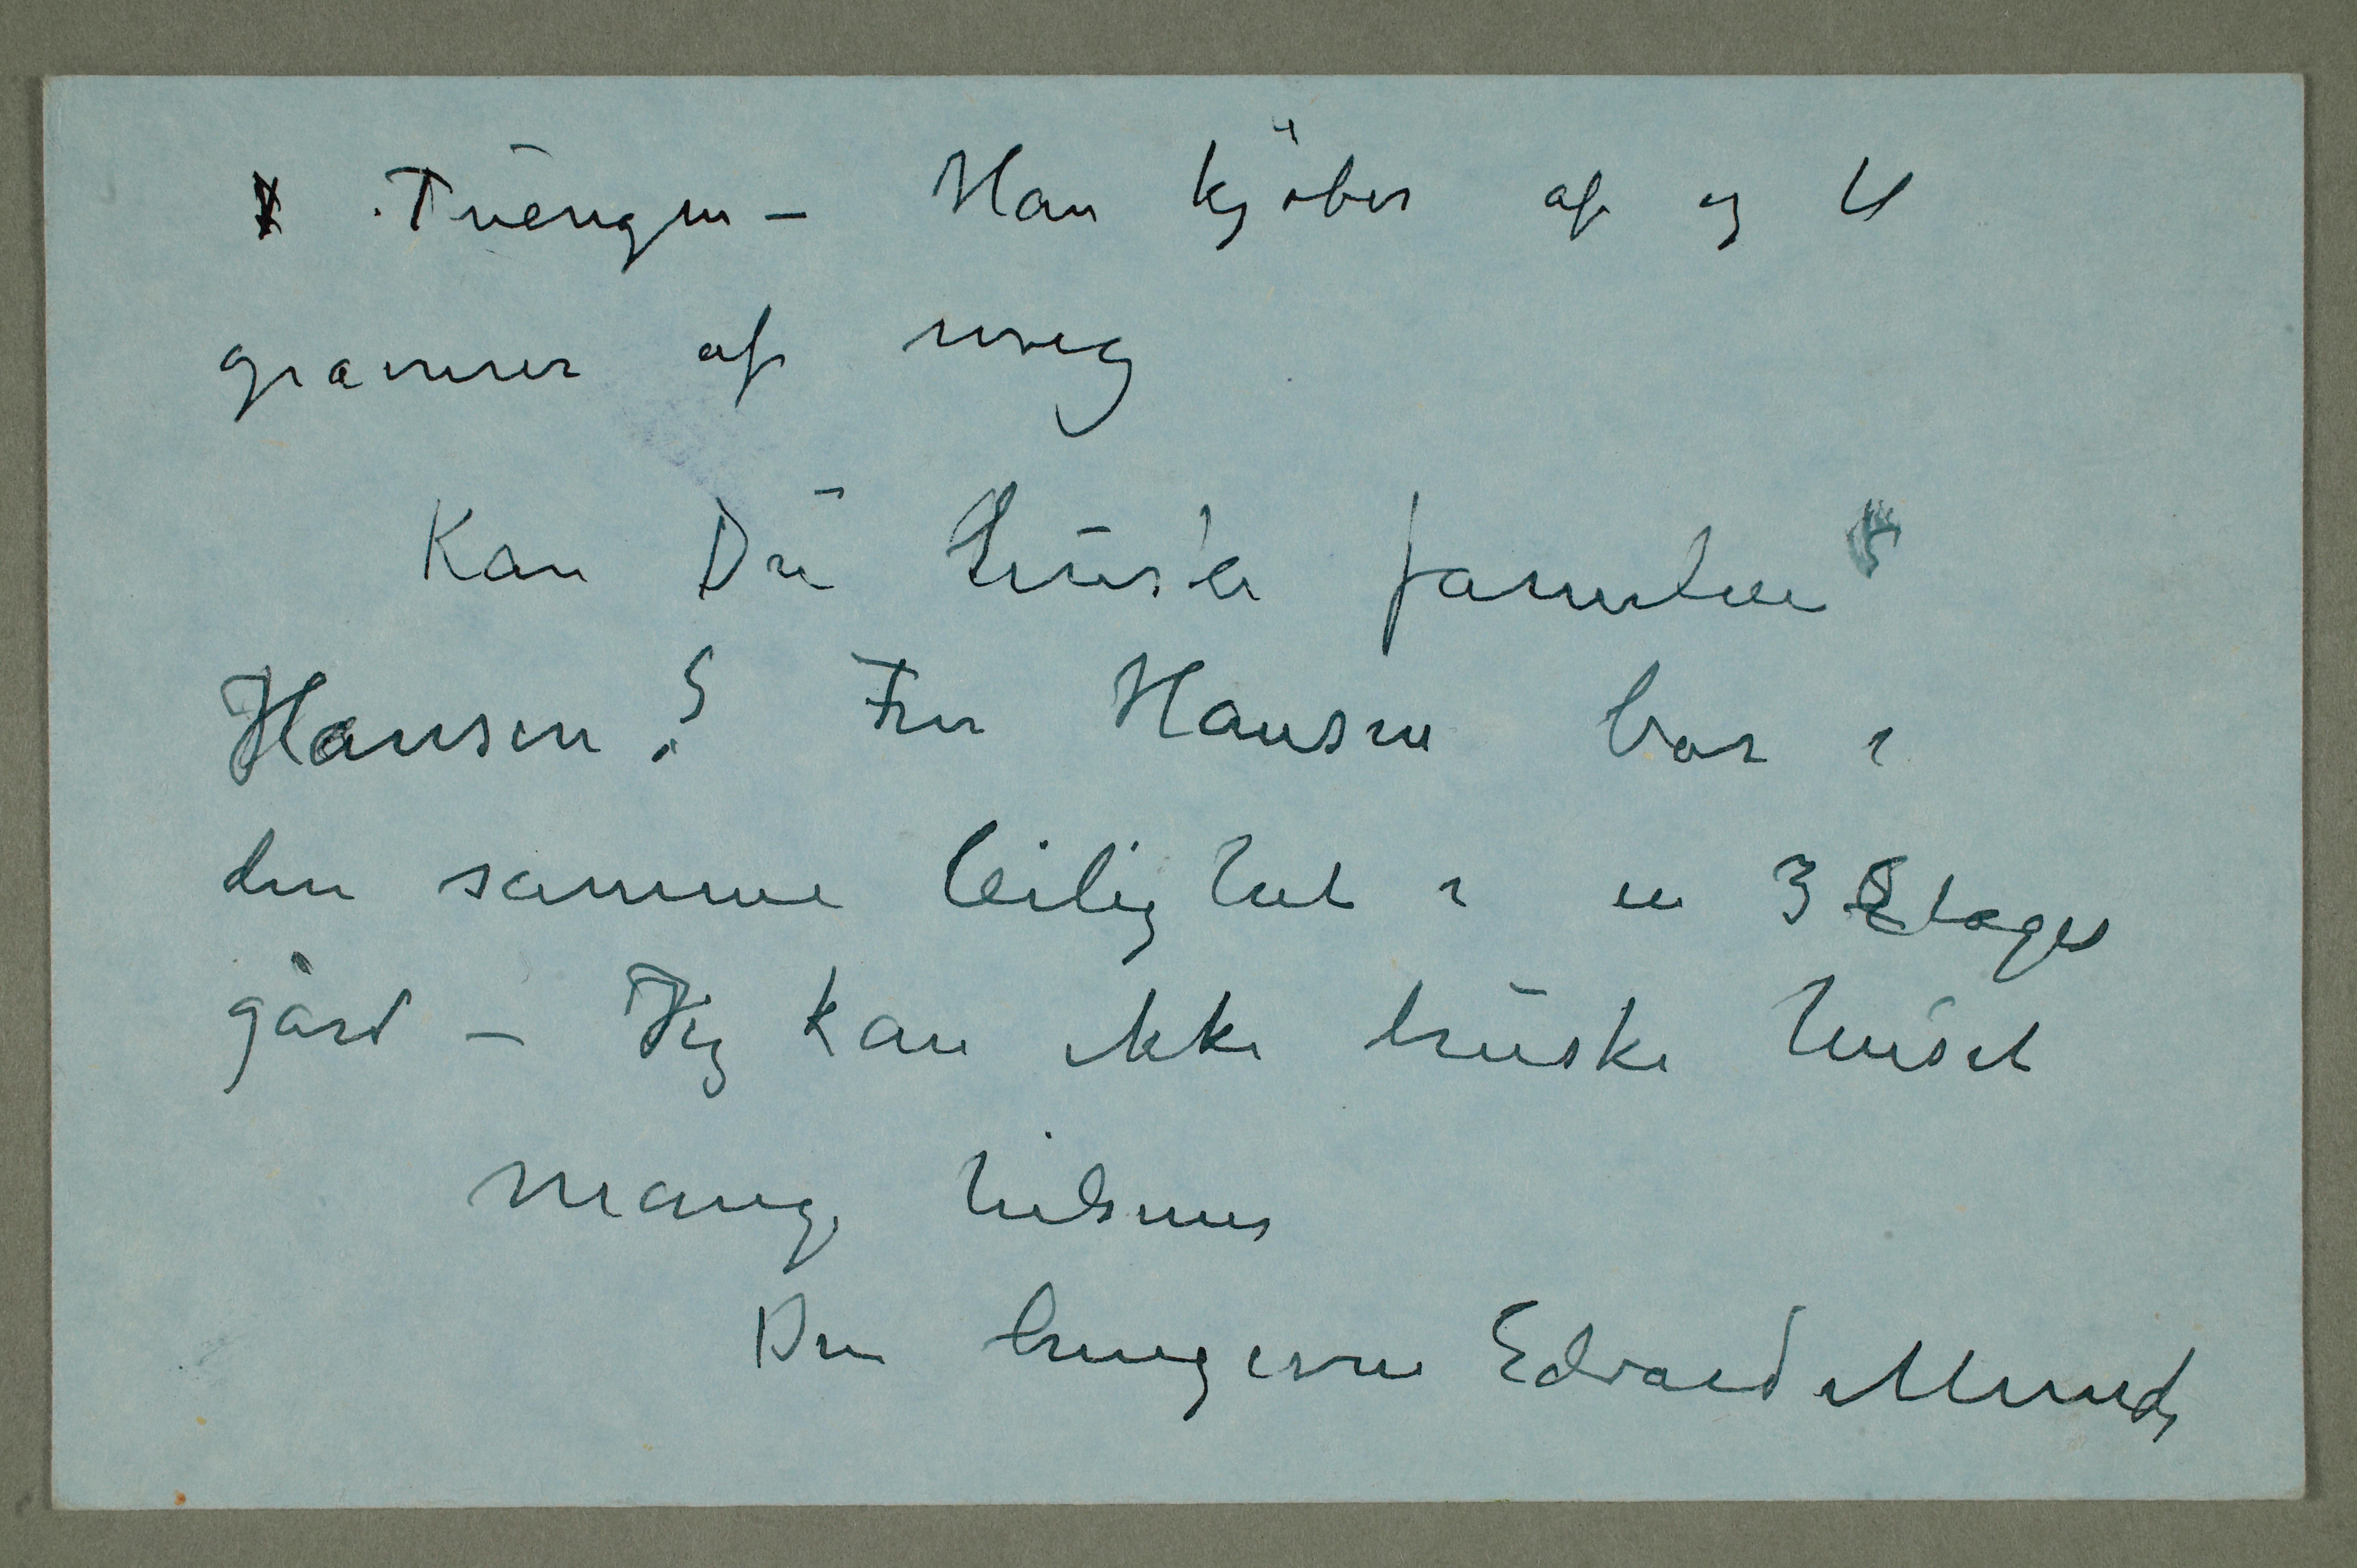 i Tuengen – Han kjøber af og til
graner af meg
Kan Du huske familien
Hansen? Fru Hansen bor i
den samme leilighet i en 3 Etages
gård – Jeg kan ikke huske huset
Mange hilsener
Din hengivne Edvard Munch